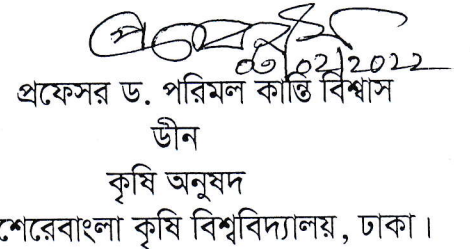 ০৩/02/2022
প্রফেসর ড. পরিমল কান্তি বিশ্বাস
ডীন
কৃষি অনুষদ
শেরেবাংলা কৃষি বিশ্ববিদ্যালয়, ঢাকা।